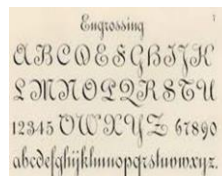 Engrossing 1
ABCDEFGHIJK
LMNOPQRSTU
12345 VWXYZ 67890
abcdefghijklmnopqrstuvwxyz.